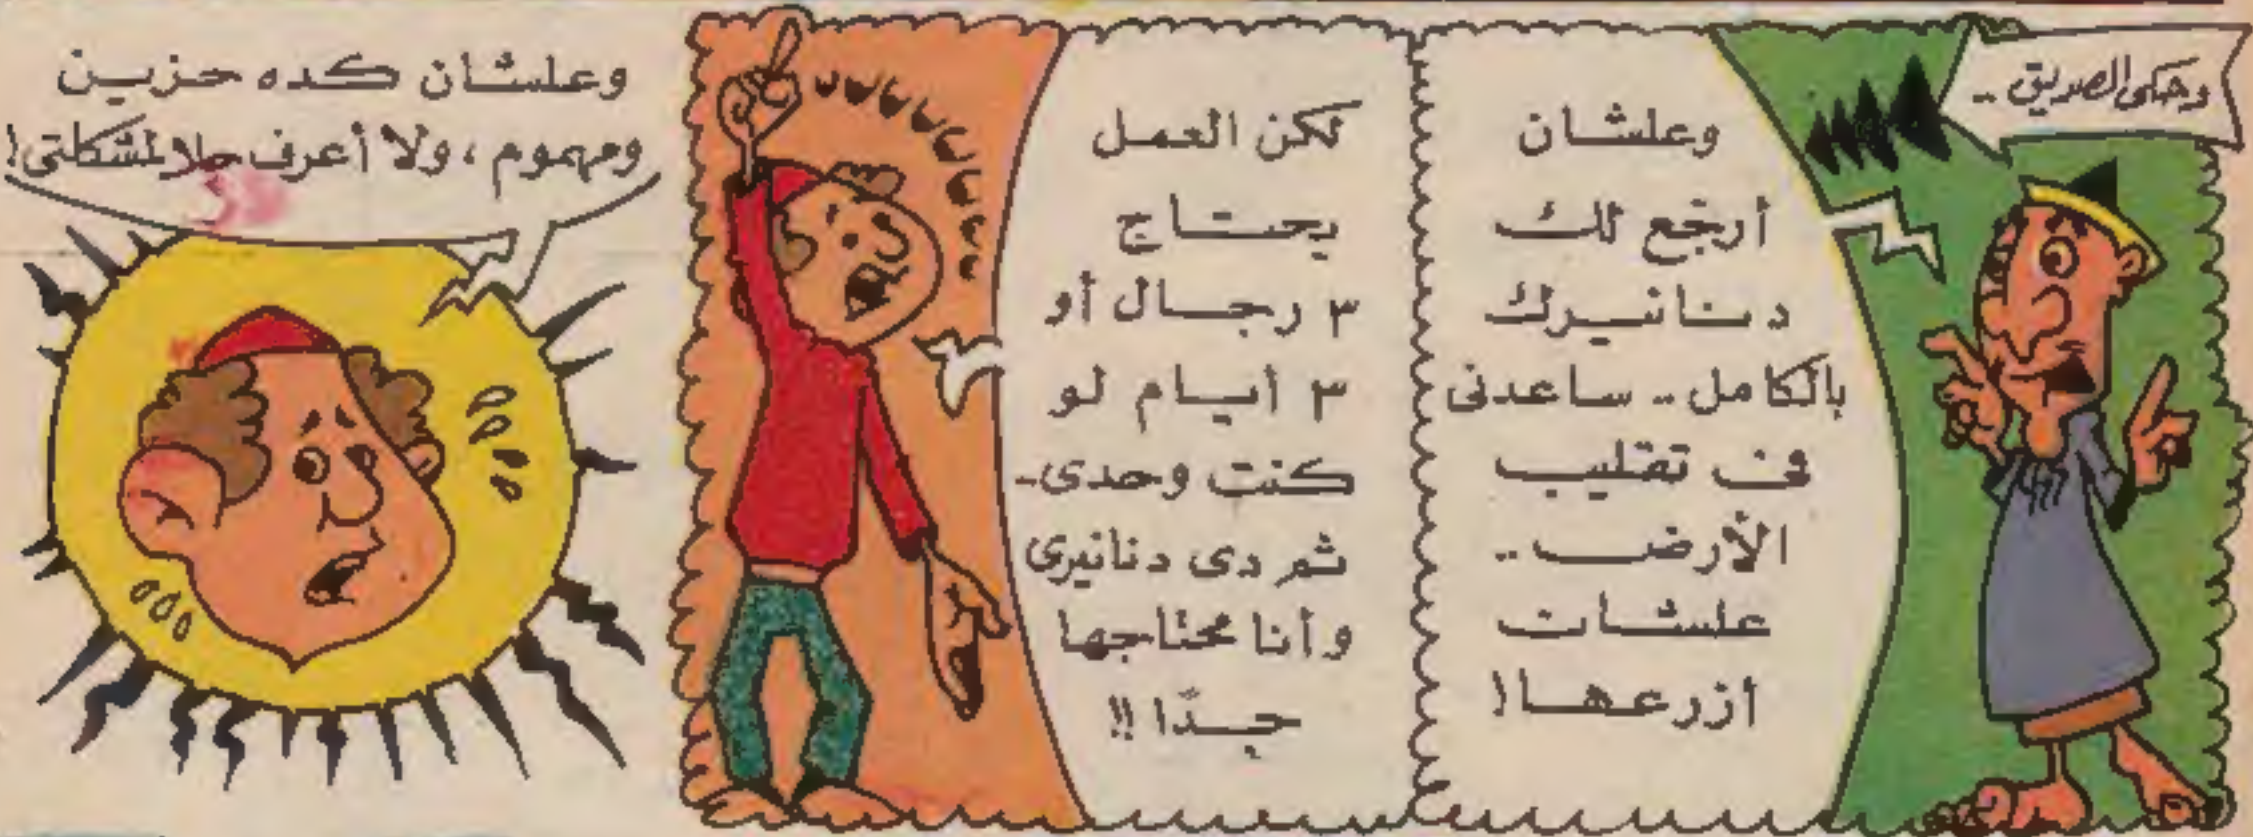 وحكى الصديق ..
وعلشان
أرجّع لك
دنانيرك
بالكامل .. ساعدنى
فى تقليب
الأرض ..
علشان
أزرعها !
لكن العمل
يحتاج
٣ رجال أو
٣ أيام لو
كنت وحدى ..
ثم دى دنانيرى
وأنا محتاجها
جدًا !!
وعلشان كده حزين
ومهموم ، ولا أعرف حلا لمشكلتى !